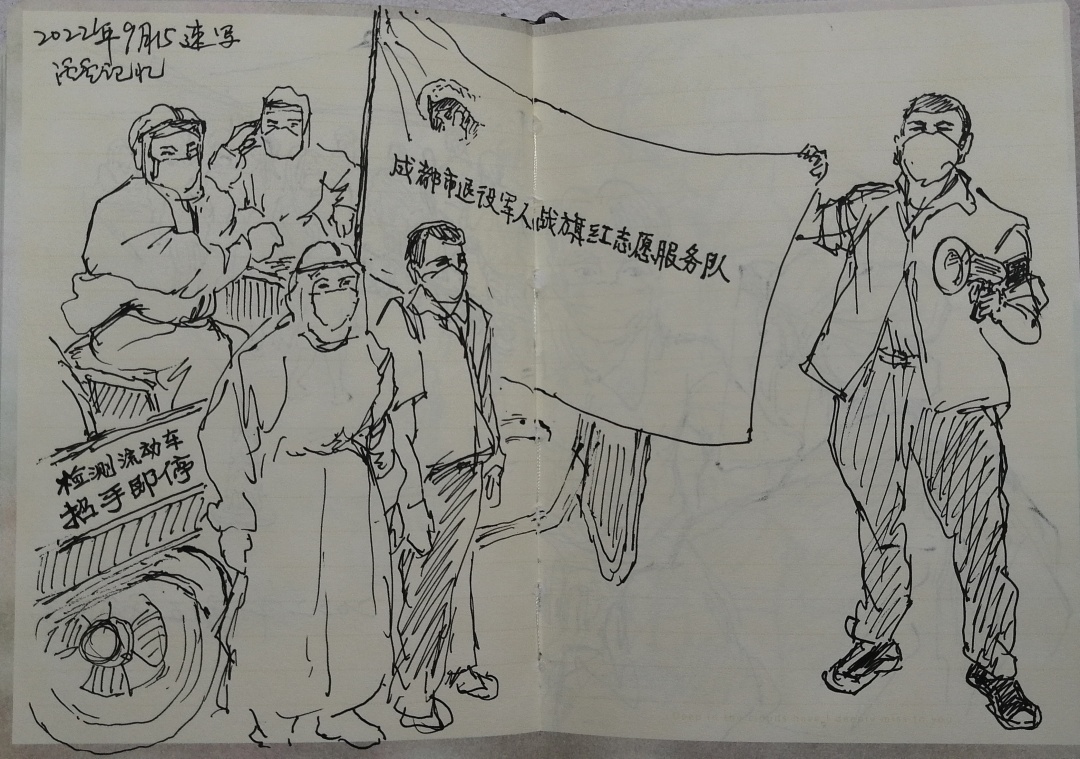 2022年9月15速写
记忆
成都市退役军人战旗红志愿服务队
检测流动车
招手即停